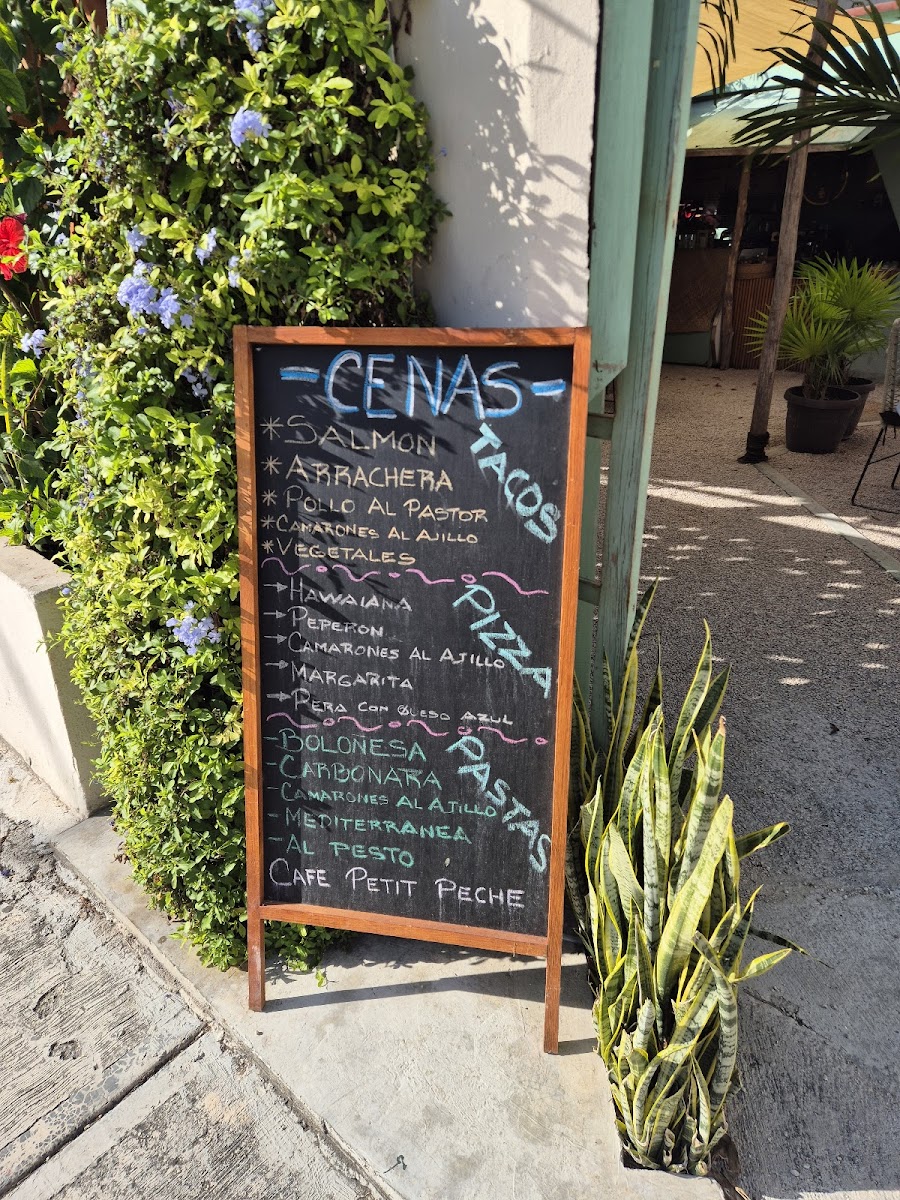 -CENAS-
TACOS
*SALMON
*ARRACHERA
*POLLO AL PASTOR
*CAMARONES AL AJILLO
*VEGETALES
PIZZA
→HAWAIANA
→PEPERON
→CAMARONES AL AJILLO
→MARGARITA
→PERA CON QUESO AZUL
PASTAS
-BOLOÑESA
-CARBONARA
-CAMARONES AL AJILLO
-MEDITERRANEA
-AL PESTO
CAFE PETIT PECHE